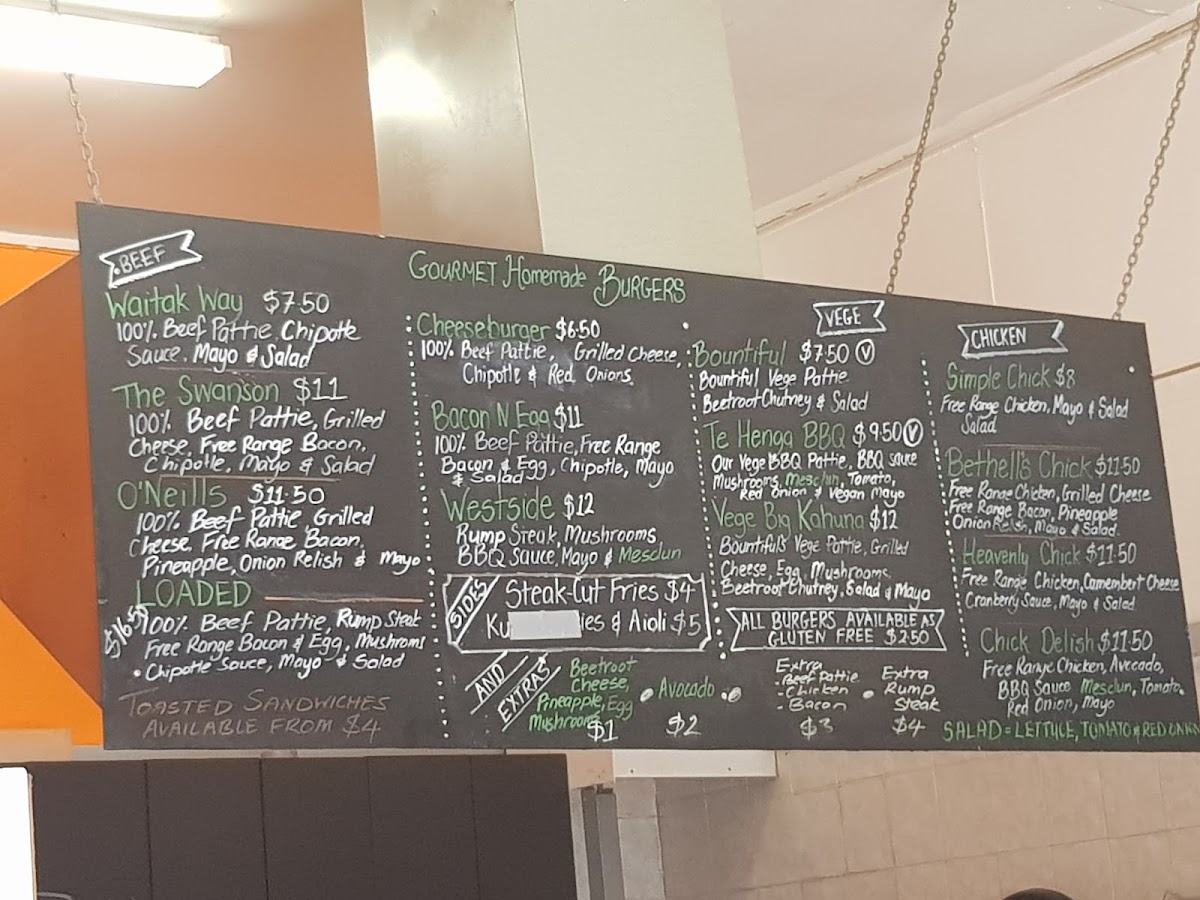 GOURMET Homemade BURGERS
BEEF
Waitak Way $7.50
100% Beef Pattie, Chipotle
Sauce, Mayo & Salad
The Swanson $11
100% Beef Pattie, Grilled
Cheese, Free Range Bacon,
Chipotle, Mayo & Salad
O'Neills $11.50
100% Beef Pattie, Grilled
Cheese, Free Range Bacon,
Pineapple, Onion Relish & Mayo
LOADED
$16.50
100% Beef Pattie, Rump Steak
Free Range Bacon & Egg, Mushroms
Chipotle Sauce, Mayo & Salad
TOASTED SANDWICHES
AVAILABLE FROM $4
Cheeseburger $6.50
100% Beef Pattie, Grilled Cheese,
Chipotle & Red Onions
Bacon N Egg $11
100% Beef Pattie, Free Range
Bacon & Egg, Chipotle, Mayo
& Salad
Westside $12
Rump Steak, Mushrooms
BBQ Sauce, Mayo & Mesclun
SIDES
Steak-Cut Fries $4
& Aioli $5
AND EXTRAS
Beetroot
Cheese,
Pineapple, Egg
Mushrooms
$1
Avocado
$2
Extra
- Beef Pattie
- Chicken
- Bacon
$3
Extra
Rump
Steak
$4
VEGE
Bountiful $7.50 V
Bountiful Vege Pattie
Beetroot Chutney & Salad
Te Henga BBQ $9.50 V
Our Vege BBQ Pattie, BBQ sauce
Mushrooms, Mesclun, Tomato,
Red Onion & Vegan Mayo
Vege Big Kahuna $12
Bountiful's Vege Pattie, Grilled
Cheese, Egg, Mushrooms,
Beetroot Chutney, Salad & Mayo
ALL BURGERS AVAILABLE AS
GLUTEN FREE $2.50
CHICKEN
Simple Chick $8
Free Range Chicken, Mayo & Salad
Salad
Bethell's Chick $11.50
Free Range Chicken, Grilled Cheese
Free Range Bacon, Pineapple
Onion Relish, Mayo & Salad
Heavenly Chick $11.50
Free Range Chicken, Camembert Cheese
Cranberry Sauce, Mayo & Salad
Chick Delish $11.50
Free Range Chicken, Avocado,
BBQ Sauce Mesclun, Tomato,
Red Onion, Mayo
SALAD = LETTUCE, TOMATO & RED